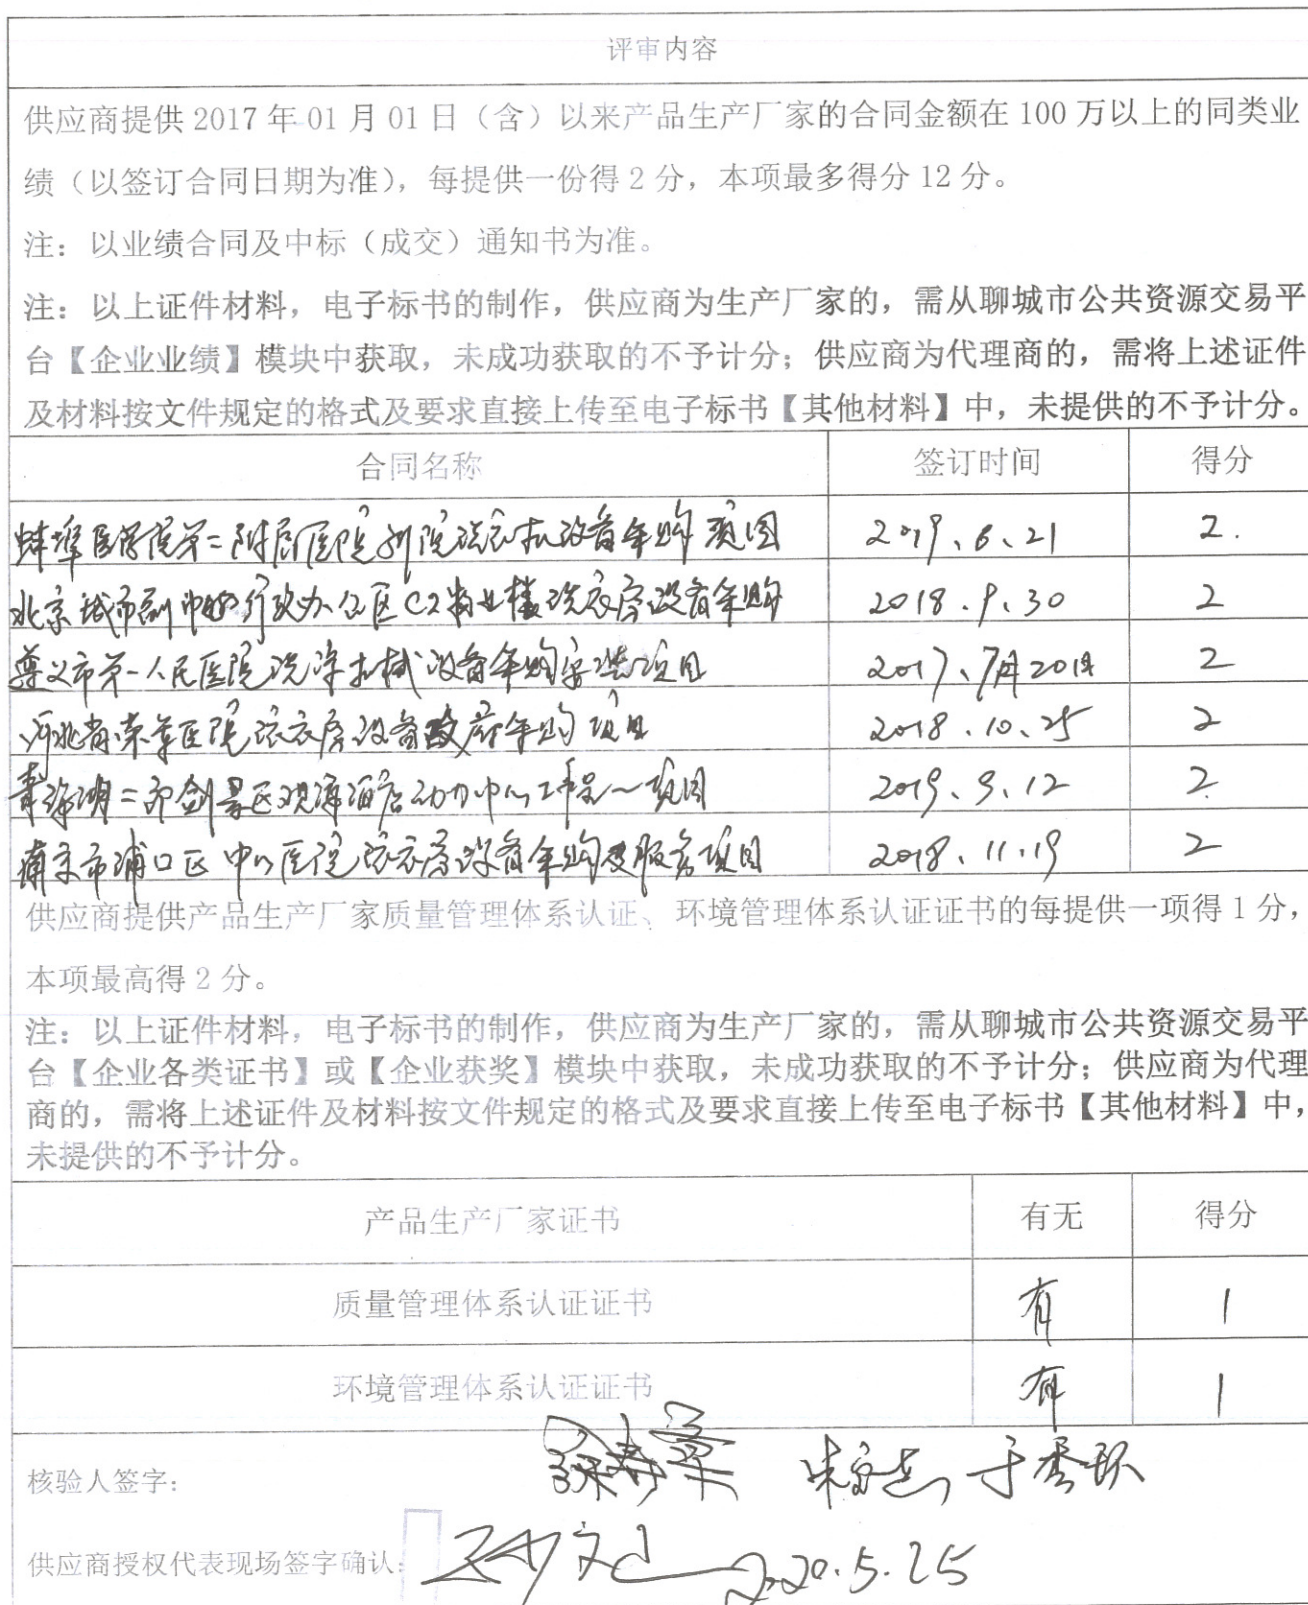 评审内容
供应商提供 2017 年 01 月 01 日（含）以来产品生产厂家的合同金额在 100 万以上的同类业
绩（以签订合同日期为准），每提供一份得 2 分，本项最多得分 12 分。
注：以业绩合同及中标（成交）通知书为准。
注：以上证件材料，电子标书的制作，供应商为生产厂家的，需从聊城市公共资源交易平
台【企业业绩】模块中获取，未成功获取的不予计分；供应商为代理商的，需将上述证件
及材料按文件规定的格式及要求直接上传至电子标书【其他材料】中，未提供的不予计分。
合同名称 签订时间 得分
蚌埠医学院第二附属医院新院洗衣机设备采购项目 2019.6.21 2.
北京城市副中心行政办公区C2物业楼洗衣房设备采购 2018.9.30 2
遵义市第一人民医院洗涤机械设备采购安装项目 2017.7月20日 2
河北省荣军医院洗衣房设备政府采购项目 2018.10.25 2
青海湖二郎剑景区观海酒店动力中心工程项目 2019.9.12 2
南京市浦口区中心医院洗衣房设备采购及服务项目 2018.11.19 2
供应商提供产品生产厂家质量管理体系认证、环境管理体系认证证书的每提供一项得 1 分，
本项最高得 2 分。
注：以上证件材料，电子标书的制作，供应商为生产厂家的，需从聊城市公共资源交易平
台【企业各类证书】或【企业获奖】模块中获取，未成功获取的不予计分；供应商为代理
商的，需将上述证件及材料按文件规定的格式及要求直接上传至电子标书【其他材料】中，
未提供的不予计分。
产品生产厂家证书 有无 得分
质量管理体系认证证书 有 1
环境管理体系认证证书 有 1
核验人签字：
供应商授权代表现场签字确认： 2020.5.25